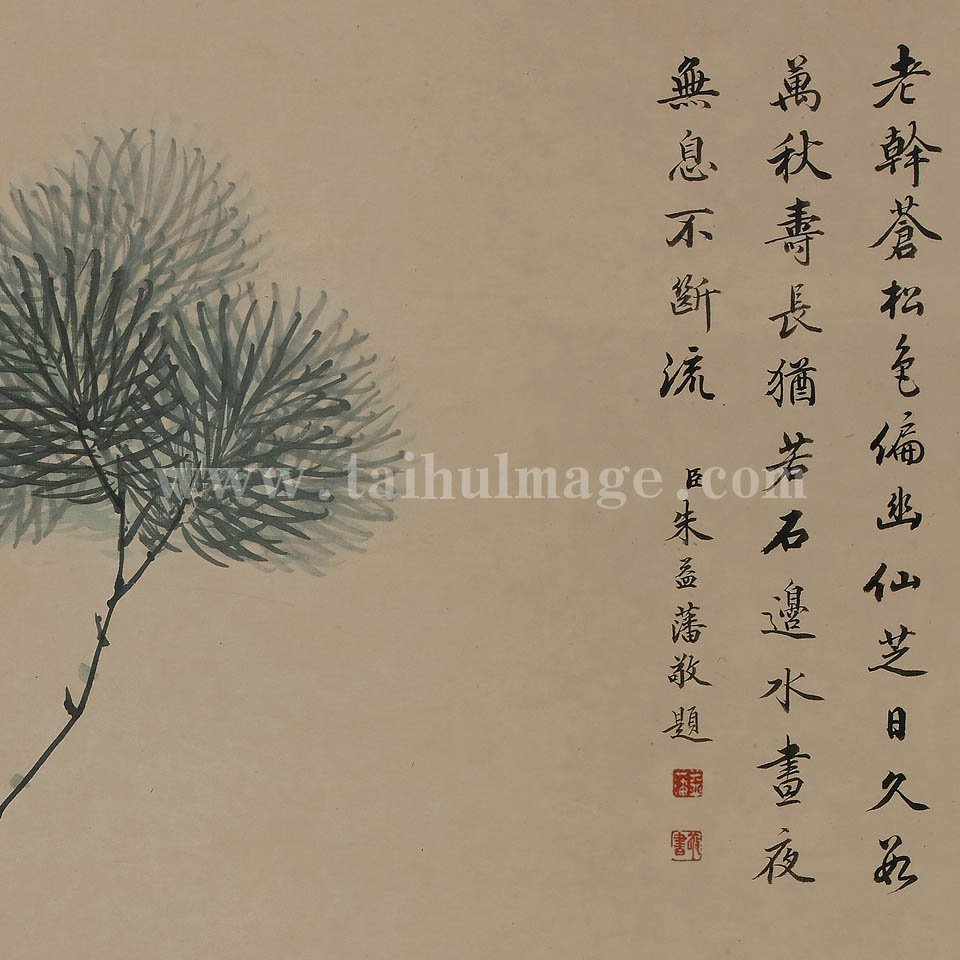 老幹蒼松色偏幽仙芝日久若
萬秋壽長猶若石邊水晝夜
無息不斷流
臣朱益藩敬題
www.taihuImage.com